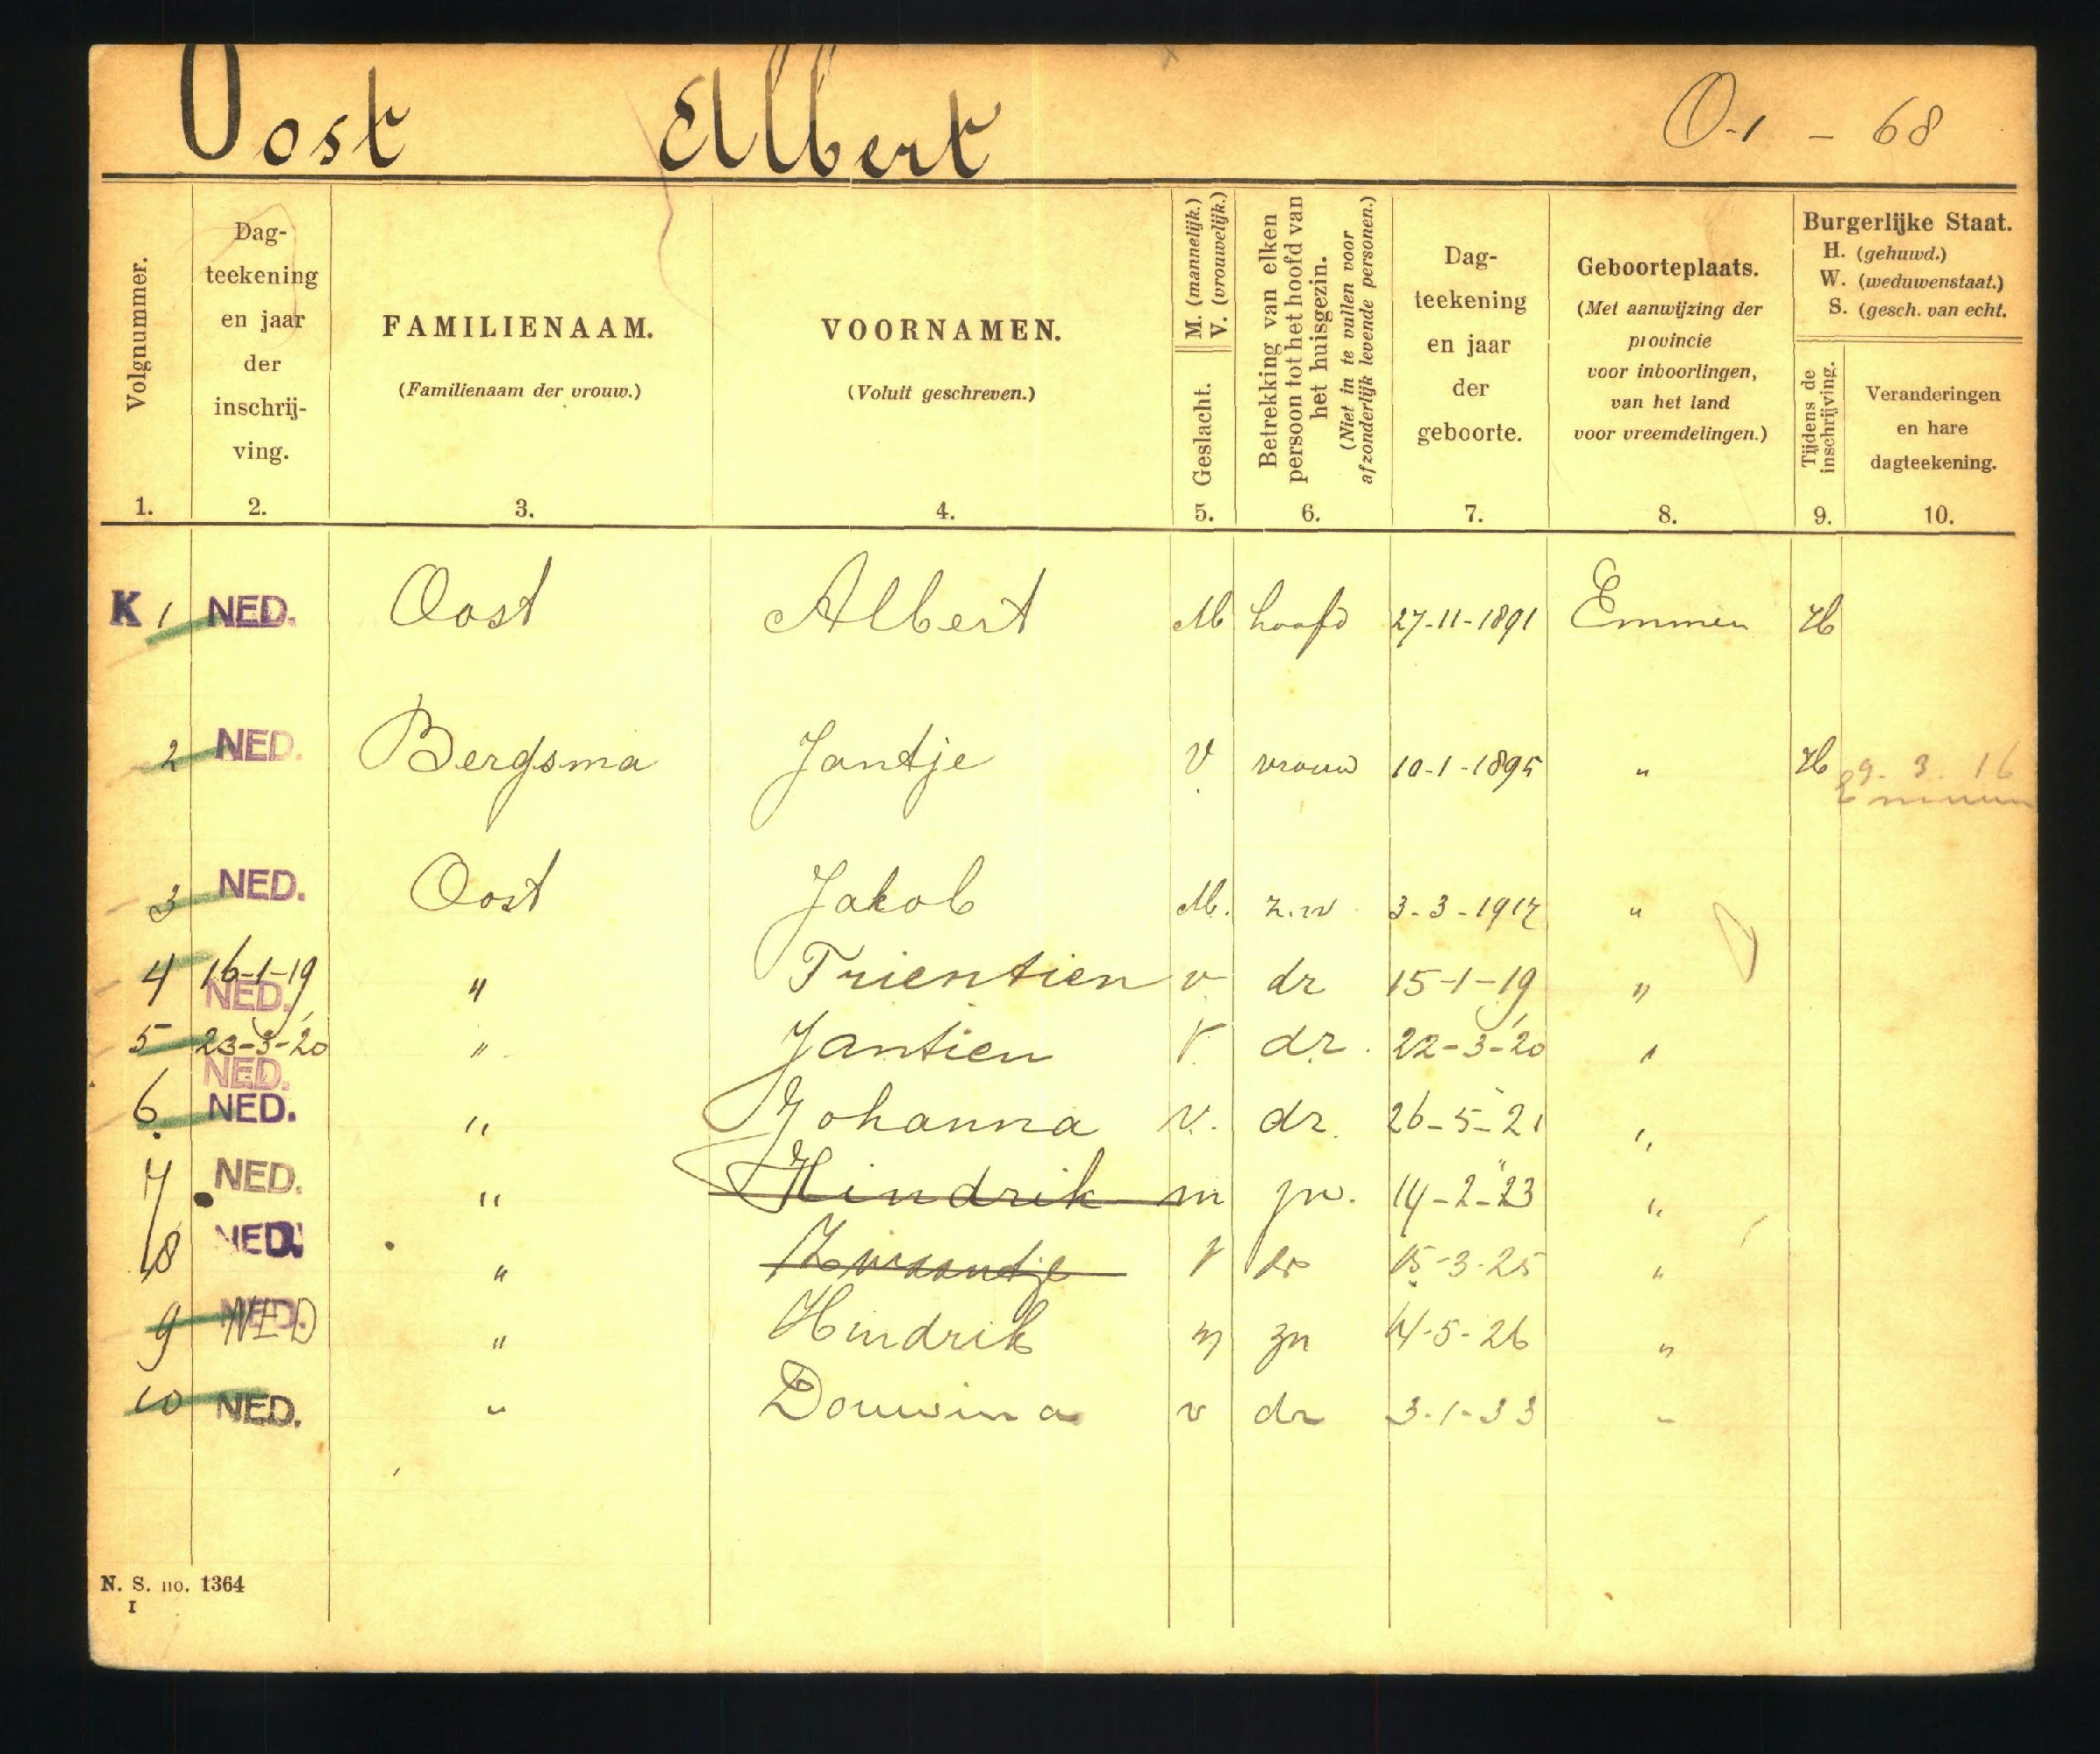 Oost Albert O-1 - 68
Volgnummer. 1.
Dag-
teekening
en jaar
der
inschrij-
ving.
2.
FAMILIENAAM.
(Familienaam der vrouw.)
3.
VOORNAMEN.
(Voluit geschreven.)
4.
M. (mannelijk.)
V. (vrouwelijk.)
Geslacht.
5.
Betrekking van elken
persoon tot het hoofd van
het huisgezin.
(Niet in te vullen voor
afzonderlijk levende personen.)
6.
Dag-
teekening
en jaar
der
geboorte.
7.
Geboorteplaats.
(Met aanwijzing der
provincie
voor inboorlingen,
van het land
voor vreemdelingen.)
8.
Burgerlijke Staat.
H. (gehuwd.)
W. (weduwenstaat.)
S. (gesch. van echt.
Tijdens de
inschrijving.
9.
Veranderingen
en hare
dagteekening.
10.
K 1 NED. Oost Albert M hoofd 27-11-1891 Emmen H
2 NED. Bergsma Jantje V vrouw 10-1-1895 " H 29.3.16
Emmen
3 NED. Oost Jakob M. z.n 3-3-1917 "
4 16-1-19 NED. " Trientien v dr 15-1-19 "
5 23-3-'20 NED. " Jantien V dr. 22-3-'20 "
6. NED. " Johanna v. dr. 26-5-21 "
7 NED. " Hindrik m zn. 14-2-23 "
8 NED. " V dr 15-3-25 "
9 NED. NED " Hindrik m zn 4-5-26 "
10 NED. " Douwina v dr 3-1-33 "
N. S. no. 1364
I